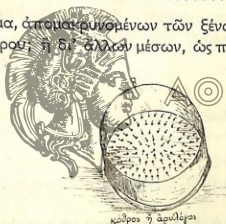 μα, ἀπομακρυνομένων τῶν ξένω
ρου, ἢ δι' ἄλλων μέσων, ὡς π
κόθρος ἢ ἀρυλόγος